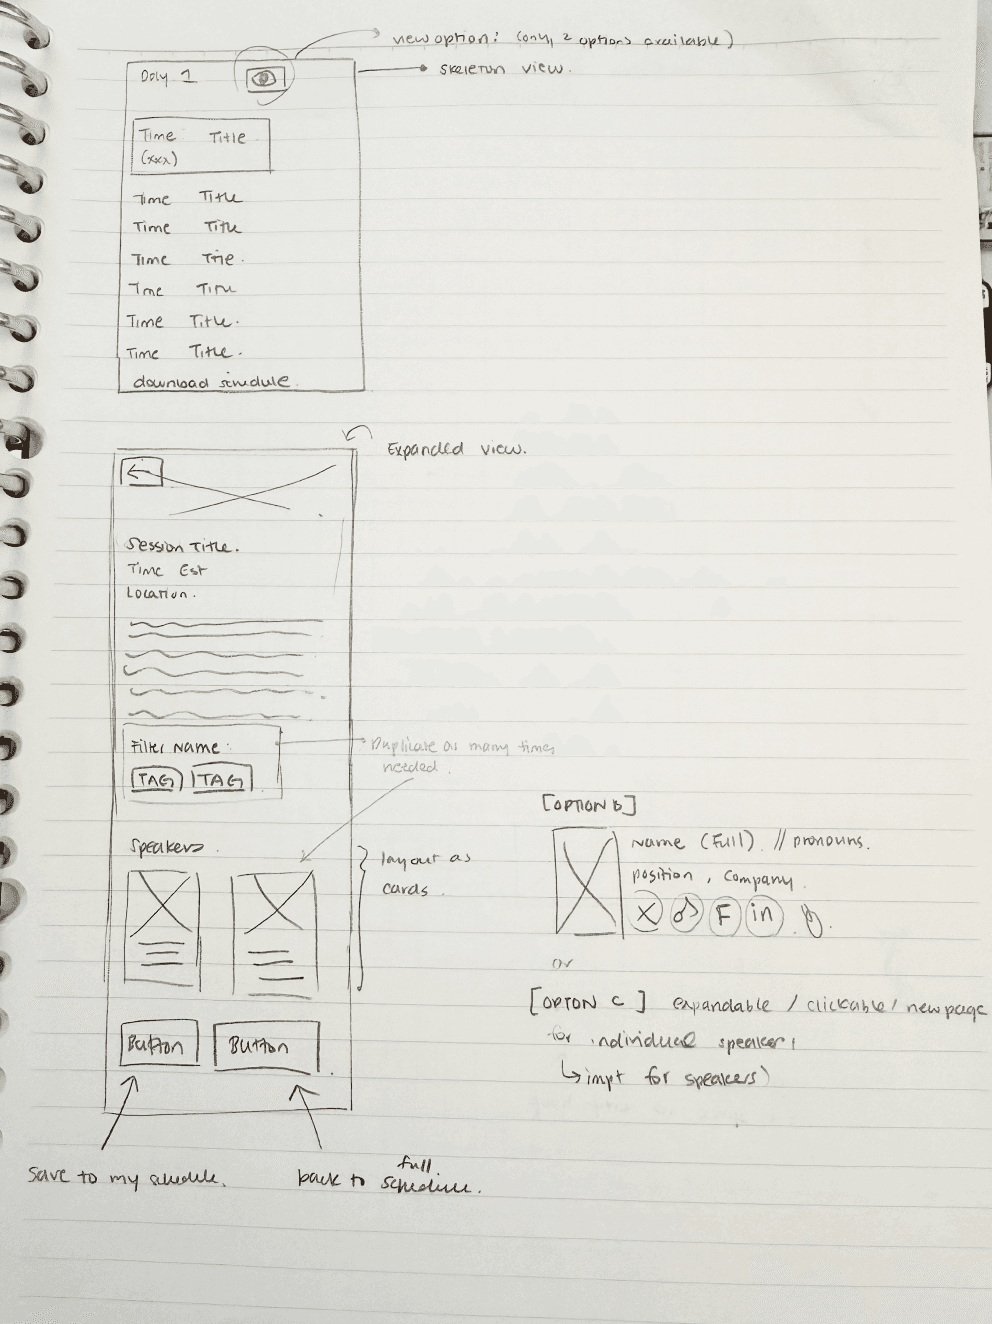 view option: (only 2 options available)
Day 1
skeleton view.
Time Title
(xxx)
Time Title
Time Title
Time Title.
Time Title
Time Title.
Time Title.
download schedule.
Expanded view.
Session Title.
Time Est
Location.
Filter Name:
TAG TAG
Duplicate as many times
needed.
Speakers.
layout as
cards.
Button Button
save to my schedule.
back to full schedule.
[OPTION B]
Name (Full) // pronouns.
position, company.
X F in
or
[OPTON C] expandable / clickable / new page
for individual speakers
↳ impt for speakers)